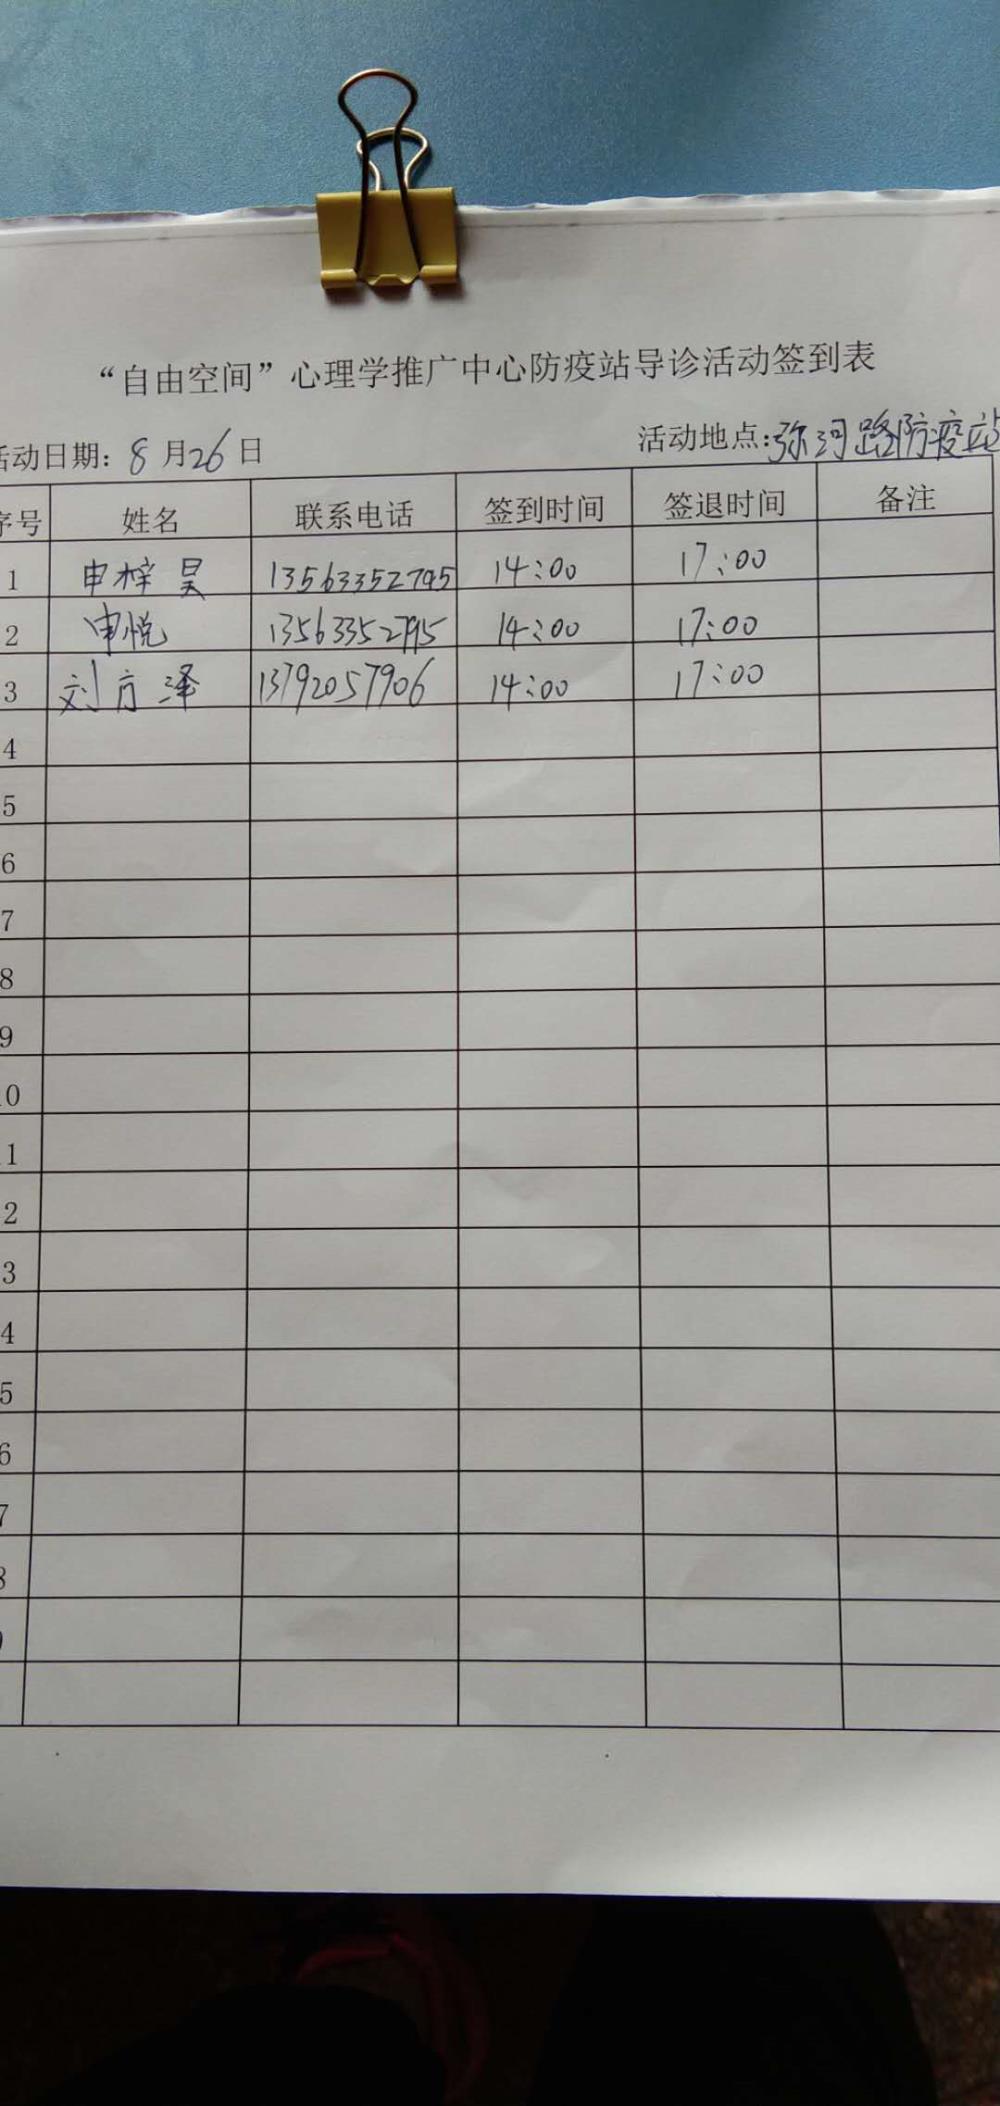 “自由空间”心理学推广中心防疫站导诊活动签到表
活动日期：8月26日 活动地点：弥河路防疫站
序号 姓名 联系电话 签到时间 签退时间 备注
1 申梓昊 13563352795 14:00 17:00
2 申悦 13563352795 14:00 17:00
3 刘方泽 13792057906 14:00 17:00
4
5
6
7
8
9
10
11
12
13
14
15
16
17
18
19